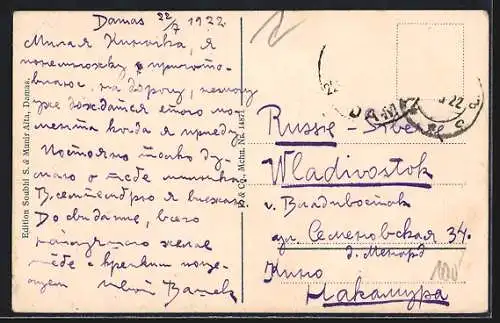 Damas 22/7 1922
Милая Киночка, я
понемножку приготов-
вляюс, на дорогу, немогу
уже дождатся етого мо-
мента когда я приеду
Постоянно только ду-
маю о тебе
В сентябрю я выезжаю
До свидание, всего
желаю
тебе и крепки поце-
твой
Edition Soubhi S. & Munir Aita, Damas.
& Co., Mchn. Nr. 1487
DAMAS
22
Russie - Siber
Wladivostok
г. Владивосток
ул. Семеновская 34.
д. Менард
Кино
Накамура
100